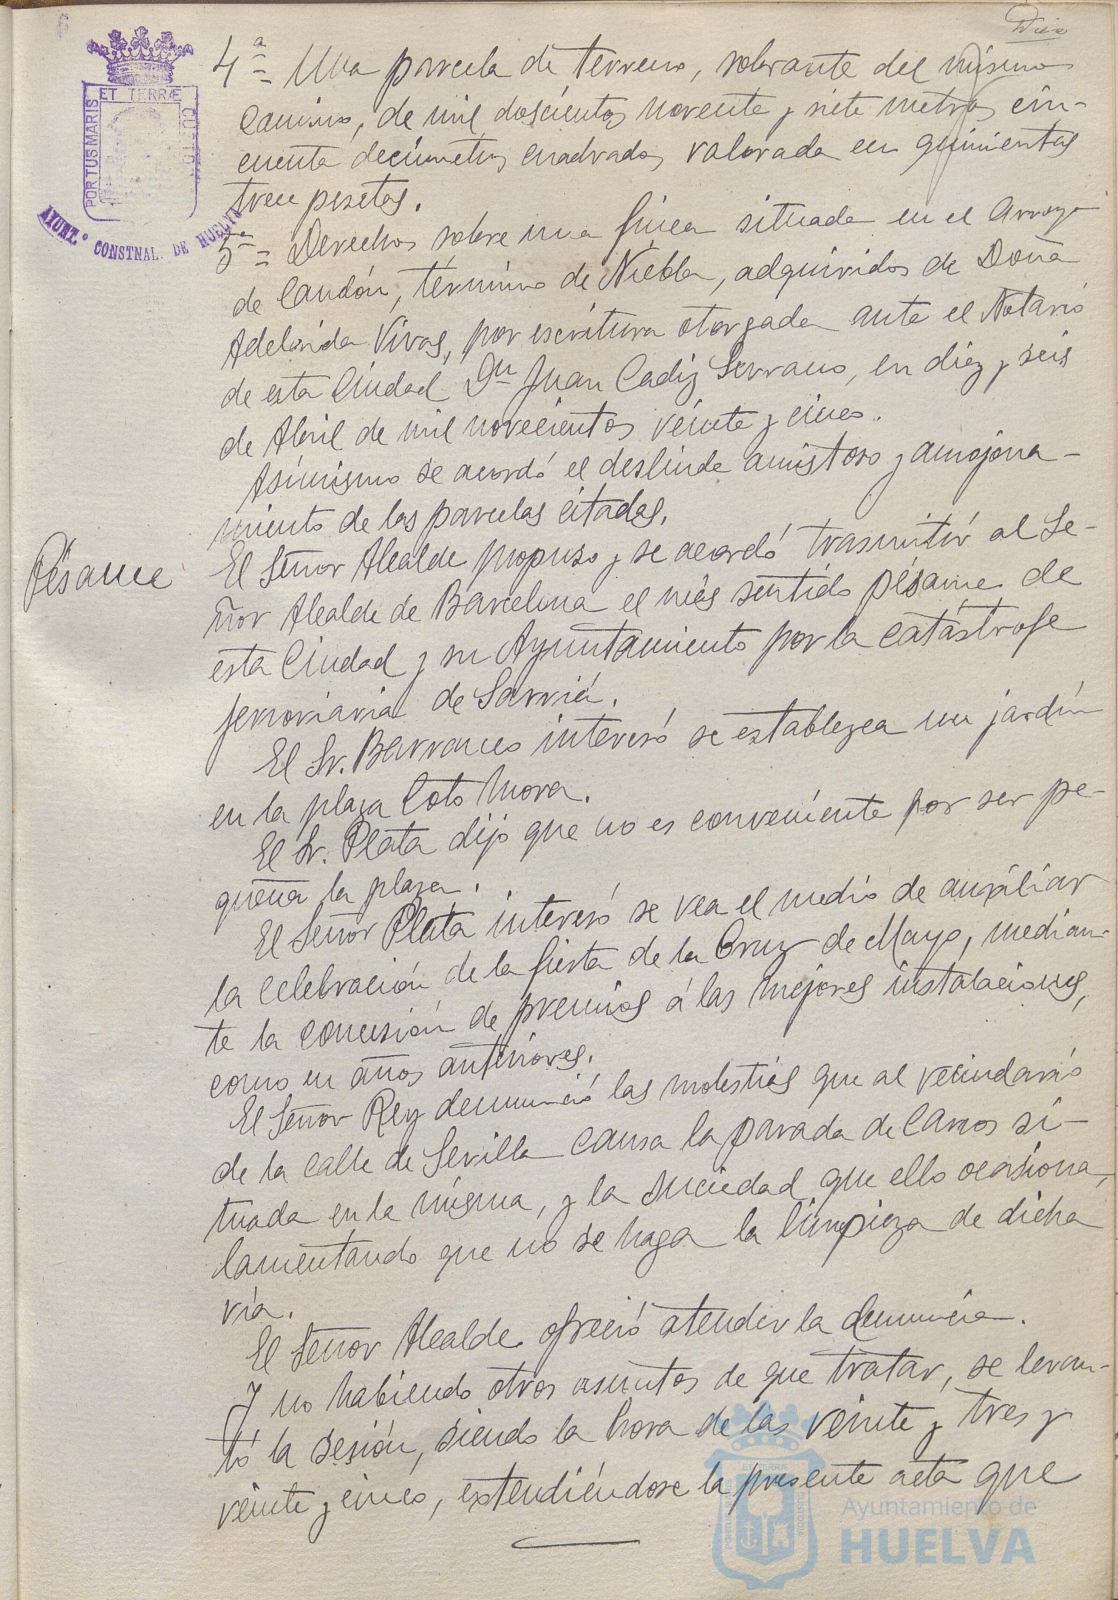 Diez
PORTUS MARIS
ET TERRÆ
CUSTO
AYUNT.º CONSTNAL. DE HUELVA
4ª = Una parcela de terreno, sobrante del mismo
camino, de mil doscientos noventa y siete metros cin-
cuenta decimetros cuadrados, valorada en quinientas
trece pesetas.
5ª = Derechos sobre una finca situada en el Arroyo
de Candón, término de Niebla, adquiridos de Doña
Adelaida Vivas, por escritura otorgada ante el Notario
de esta Ciudad Dn Juan Cadiz Serrano, en diez y seis
de Abril de mil novecientos veinte y cinco.
Asimismo se acordó el deslinde amistoso y amojona-
miento de las parcelas citadas.
Pésame
El Señor Alcalde propuso y se acordó trasmitir al Se-
ñor Alcalde de Barcelona el más sentido pésame de
esta Ciudad y su Ayuntamiento por la catástrofe
ferroviaria de Sarriá.
El Sr. Barranco interesó se establezca un jardín
en la plaza Coto Mora.
El Sr. Plata dijo que no es conveniente por ser pe-
queña la plaza.
El Señor Plata interesó se vea el medio de auxiliar
la celebración de la fiesta de la Cruz de Mayo, median-
te la concesión de premios á las mejores instalaciones,
como en años anteriores.
El Señor Rey denunció las molestias que al vecindario
de la calle de Sevilla causa la parada de Carros si-
tuada en la misma, y la suciedad que ello ocasiona,
lamentando que no se haga la limpieza de dicha
vía.
El Señor Alcalde ofreció atender la denuncia.
Y no habiendo otros asuntos de que tratar, se levan-
tó la sesión, siendo la hora de las veinte y tres y
veinte y cinco, extendiéndose la presente acta que
Ayuntamiento de
HUELVA